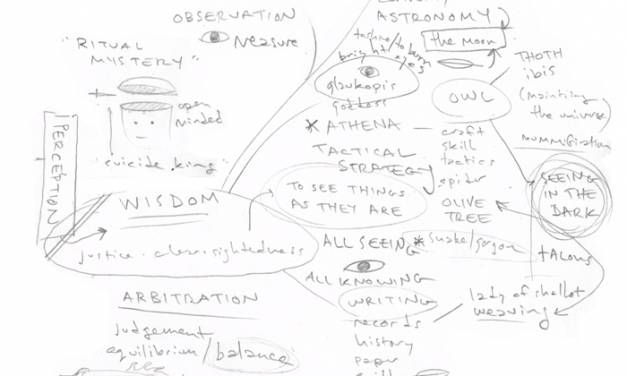 OBSERVATION
measure
"RITUAL
MYSTERY"
open
minded
"suicide king"
PERCEPTION
WISDOM
justice · clear-sightedness
ARBITRATION
judgement
equilibrium / balance
ASTRONOMY
the moon
bright eyes
glaukopis
goddess
OWL
THOTH
ibis
(maintaining
the universe)
mummification
* ATHENA
craft
skill
tactics
spider
TACTICAL
STRATEGY
TO SEE THINGS
AS THEY ARE
OLIVE
TREE
SEEING
IN THE
DARK
ALL SEEING
* snake/gorgon
talons
ALL KNOWING
WRITING
records
history
paper
lady of shallot
weaving